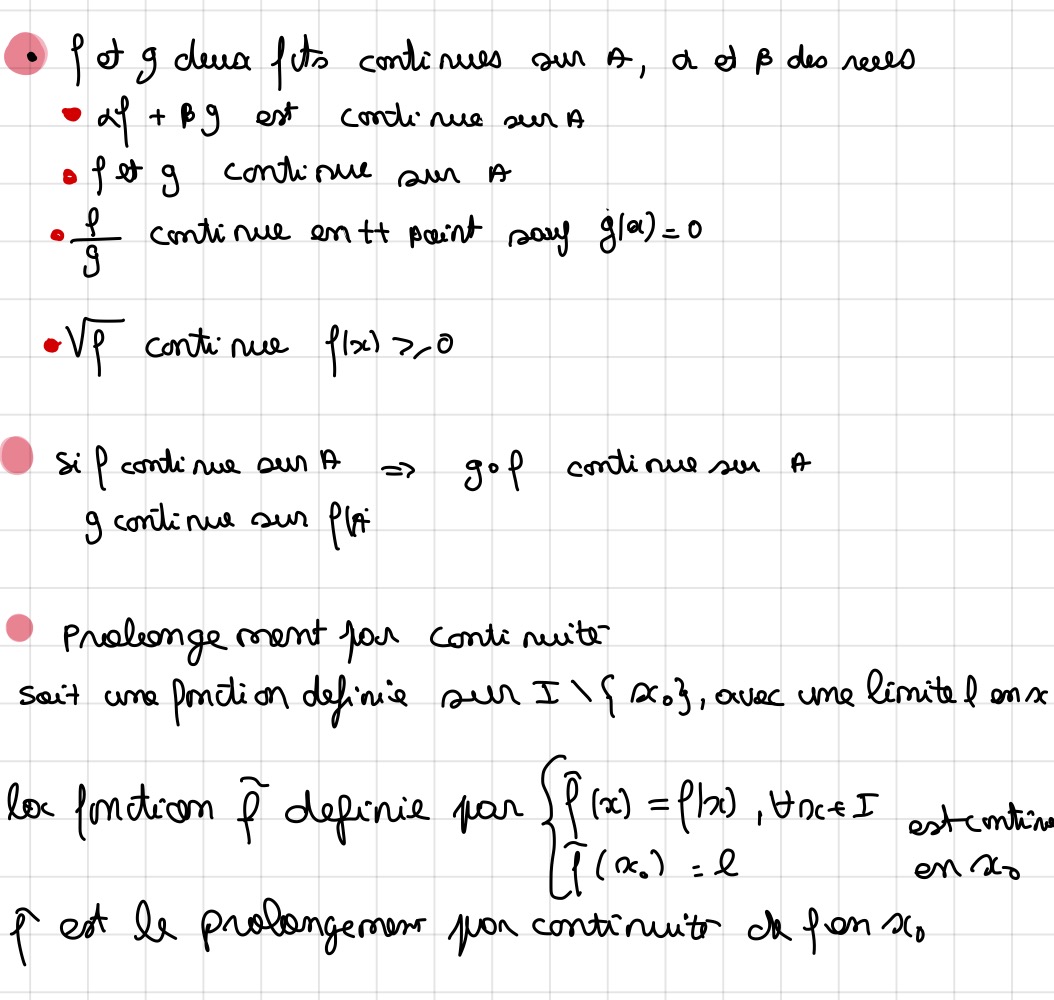 • f et g deux fcts continues sur A, α et β des reels
• αf + βg est continue sur A
• f et g continue sur A
• f/g continue en tt point sauf g(x) = 0
• √f continue f(x) ⩾ 0
Si f continue sur A ⇒ g∘f continue sur A
g continue sur f(A
Prolongement par continuité
Soit une fonction definie sur I \ { x₀}, avec une limite l en x
la fonction f̃ definie par { f̃(x) = f(x) , ∀x ∈ I est continue
f̃(x₀) = l en x₀
f̃ est le prolongement par continuité de f en x₀